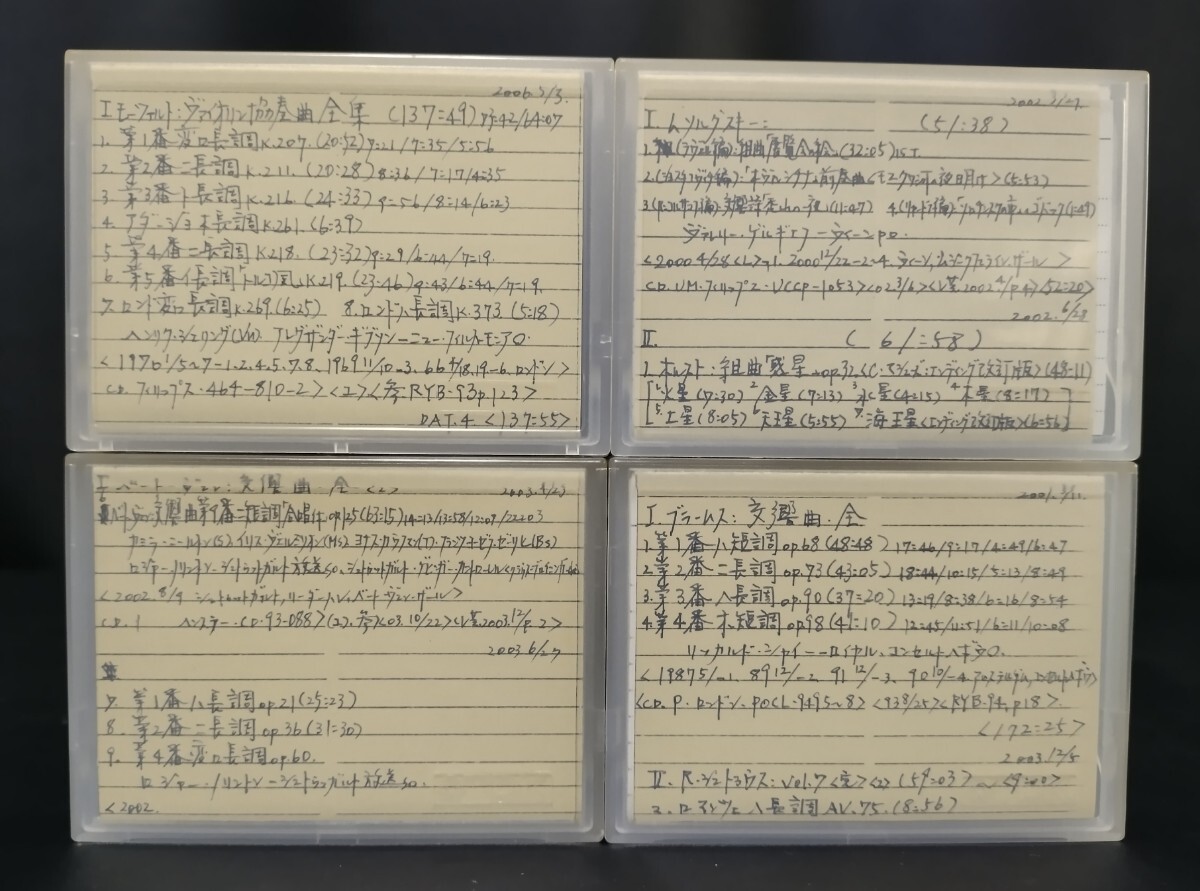 2006.5/3.
I. モーツァルト:ヴァイオリン協奏曲全集 (137=49)
1. 第1番変ロ長調K.207. (20:52) 7=35/5=56
2. 第2番ニ長調K.211. (20:28) 8=36/7=17/4=35
3. 第3番ト長調K.216. (24:33) 9=56/8=14/6=23
4. アダージョホ長調K.261. (6=39)
5. 第4番ニ長調K.218. (23=32) 9=29/6=44/7=19.
6. 第5番イ長調「トルコ風」K.219. (23=46) 9=43/6=44/7=19.
7. ロンド変ロ長調K.269 (6=25) 8. ロンドハ長調K.373 (5=18)
ヘンリク・シェリング(Vn) アレグザンダー・ギブソンーニュー・フィルハーモニアO.
<1970 1/5~7-1.2.4.5.7.8. 1969 11/10-3. 66 4/18.19-6. ロンドン>
CD. フィリップス・464-810-2> <2> <参RYB-93p.123>
DAT.4 <137=55>
I. ムソルグスキー: (51:38)
1. (ラヴェル編):組曲「展覧会の絵」(32:05)
2. (ショスタコヴィチ編):「ホヴァンシチナ」前奏曲<モスクワ河の夜明け>(5=53)
交響詩 (11:47)
ヴァレリー・ゲルギエフーウィーンPO.
<2000 4/28 12/22-2~4. ウィーン, ムジークフェラインザール>
CD. UM・フィリップス・UCCP-1053> <02 3/6> <52=20>
2002. 6/28
II. (61=58)
1. ホルスト:組曲「惑星」op.32. (48-11)
[1.火星(7=30) 2金星(7=13) 3水星(4=15) 4木星(8=17)]
[5.土星(8:05) 6天王星(5=55) 7.海王星<エンディング改訂版>(6=56)]
I. ベートーヴェン:交響曲全<2> 2003.4/23
交響曲第9番ニ短調「合唱付」op.125 (63=15) 14=13/13=58/12=09/22=03
カミラ・ニールンド(S) イリス・ヴェルミリオン(Ms) ヨナス・カウフマン(T)
ロジャー・ノリントンーシュトゥットガルト放送SO.
<2002. 8/9 シュトゥットガルト, リーダーハレ, ベートーヴェン・ザール>
CD. 1 ヘンスラー・CD-93-088> (2). 参<03.10/22> <V芸.2003.12/p.2>
2003 6/27
7. 第1番ハ長調op.21 (25=23)
8. 第2番ニ長調op.36 (31=30)
9. 第4番変ロ長調op.60.
ロジャー・ノリントンーシュトゥットガルト放送SO.
<2002.
I. ブラームス:交響曲全
1. 第1番ハ短調op.68 (48=48) 17=46/9=17/4=49/6=47
2. 第2番ニ長調op.73 (43:05) 18=44/10=15/5=13/8=49
3. 第3番ヘ長調op.90 (37=20) 13=19/8=38/6=16/8=54
4. 第4番ホ短調op.98 (41=10) 12=45/11=51/6=11/10=08
リッカルド・シャイーーロイヤル・コンセルトヘボウO.
<1987 5/-1. 89 12/-2. 91 12/-3. 90 10/-4. アムステルダム, コンセルトヘボウ>
<CD. P・ロンドン. POCL-9495~8> <93 8/25> <RYB-94. p.18>
<172=25>
2003.12/5
II. R.シュトラウス:Vol.7<完><2> (59=03) ~ <9=00>
ハ長調AV.75. (8=56)